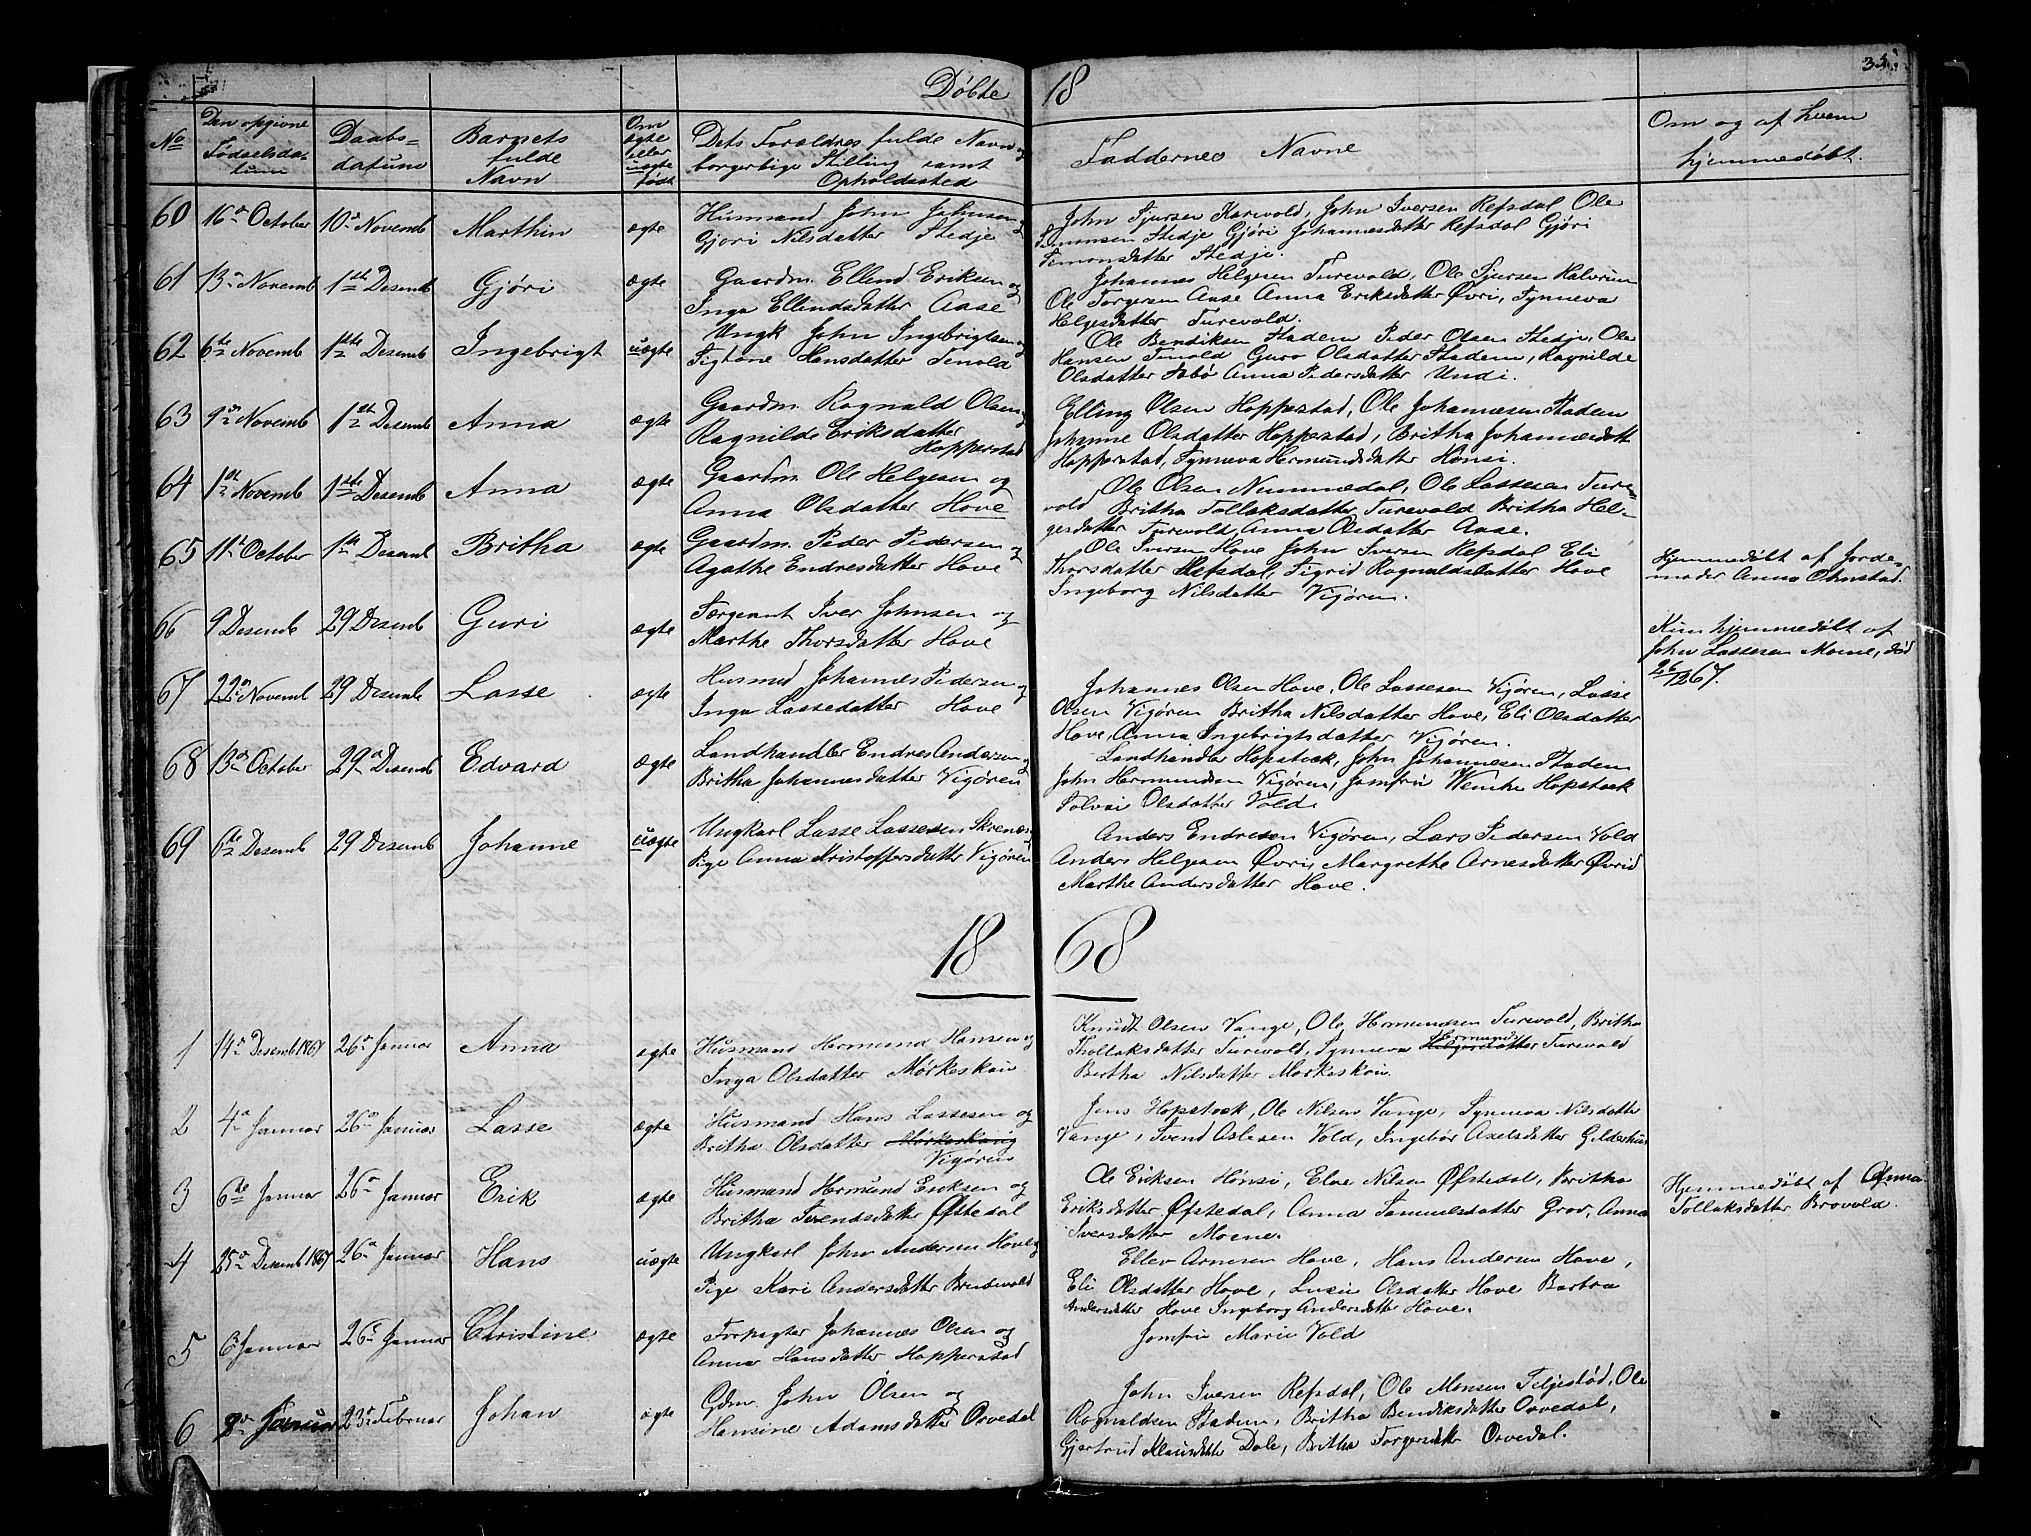 Døbte 18
No
Den opgivne
Fødselsda-
tum
Daabs-
datum
Barnets
fulde
Navn
Om
ægte
eller
uægte
født
Dets Forældres fulde Navn og
borgerlige Stilling samt
Opholdssted
Faddernes Navne
Om og af hvem
hjemmedøbt.
60 16de October 10de Novemb Marthin ægte
Husmand John Johnsen og
Gjøri Nilsdatter Stedje
John Sjursen Karivold, John Iversen Refsdal Ole
Simonsen Stedje Gjøri Johannesdatter Refsdal Gjøri
Simonsdatter Stedje.
61 13de Novemb 1ste Desemb Gjøri ægte
Gaardm. Ellend Eriksen og
Inga Ellendsdatter Aase
Johannes Helgesen Turevold, Ole Sjursen Halvrim
Ole Torgersen Aase Anna Eriksdatter Øvri, Synneva
Helgesdatter Turevold.
62 6te Novemb 1ste Desemb Ingebrigt uægte
Ungk John Ingebrigtsen og
Sigtone Hansdatter Tenold
Ole Bendiksen Stadem Peder Olsen Stedje, Ole
Hansen Tenold Guro Olsdatter Stadem, Ragnilde
Olsdatter Anna Pedersdatter Undi.
63 9de Novemb 1ste Desemb Anna ægte
Gaardm. Ragnald Olsen og
Ragnilde Eriksdatter
Hopperstad
Elling Olsen Hoppestad, Ole Johannesen Stadem
Johanne Olsdatter Hoppestad, Britha Johannesdatt
Hopperstad, Synneva Hermundsdatter Hønsi.
64 1ste Novemb 1ste Desemb Anna ægte
Gaardm Ole Helgesen og
Anna Olsdatter Hove
Ole Olsen Nummedal, Ole Lassesen Ture-
vold Britha Tollaksdatter Turevold Britha Hel-
gesdatter Turevold, Anna Olsdatter Aase.
65 11te October 1ste Desemb Britha ægte
Gaardm. Peder Pedersen og
Agathe Endresdatter Hove
Ole Iversen Hove John Iversen Refsdal Eli
Thorsdatter Refsdal, Sigrid Ragnaldsdatter Hove
Ingeborg Nilsdatter Vigøren.
Hjemmedøbt af Jorde-
moder Anna Ohnstad.
66 9 Desemb 29 Desemb Guri ægte
Sergeant Iver Johnsen og
Marthe Thorsdatter Hove
Kun hjemmedøbt af
John Lassesen Moene, død
26/12 67.
67 22de Novemb 29 Desemb Lasse ægte
Husmd Johannes Pedersen og
Inga Lassedatter Hove
Johannes Olsen Hove, Ole Lassesen Vigøren, Lasse
Olsen Vigøren Britha Nilsdatter Hove, Eli Olsdatter
Hove, Anna Ingebrigtsdatter Vigøren.
68 13de October 29de Desemb Edvard ægte
Landhandler Endre Andersen og
Britha Johannesdatter Vigøren
Landhandler Hopstock, John Johannesen Stadem
John Hermundsen Vigøren, Jomfru Wenche Hopstock
Solvei Olsdatter Vold.
69 6te Desemb 29 Desemb Johanne uægte
Ungkarl Lasse Lassesen
Pige Anna Kristoffersdatter Vigøren
Anders Endresen Vigøren, Lars Pedersen Vold
Anders Helgesen Øvri, Margrethe Arnesdatter Øvrid
Marthe Andersdatter Hove.
18 68
1 14de Desemb 1867 26de Januar Anna ægte
Husmand Hermund Hansen og
Inga Olsdatter Mørkeskøn
Knudt Olsen Vange, Ole Hermundsen Turevold, Britha
Thollaksdatter Turevold, Synneva Hermundsdatter Turevold
Bertha Nilsdatter Mørkeskøn.
2 4de Januar 26de Januar Lasse ægte
Husmand Hans Lassesen og
Britha Olsdatter
Vigøren
Jens Hopstock, Ole Nilsen Vange, Synneva Nilsdatter
Vange, Svend Aslesen Vold, Ingebør Axelsdatter Gildeshus
3 6te Januar 26de Januar Erik ægte
Husmand Hermund Eriksen og
Britha Svendsdatter Øfstedal
Ole Eriksen Hønsi, Elve Nilsen Øfstedal, Britha
Eriksdatter Øfstedal, Anna Samuelsdatter Grov, Anna
Iversdatter Moene.
Hjemmedøbt af Anna
Tollaksdatter Brovold.
4 25de Desemb 1867 26de Januar Hans uægte
Ungkarl John Andersen Hove og
Pige Kari Andersdatter
Ellev Arnesen Hove, Hans Andersen Hove,
Eli Olsdatter Hove, Lusie Olsdatter Hove Barbra
Andersdatter Hove Ingeborg Andersdatter Hove.
5 6 Januar 26de Januar Christine ægte
Forpagter Johannes Olsen og
Anna Hansdatter Hopperstad
Jomfru Marie Vold
6 8de Januar 23de Februar Johan ægte
Gdm. John Olsen og
Hansine Adamsdatter Orvedal
John Iversen Refsdal, Ole Monsen Feljestød, Ole
Ragnaldsen Stadem, Britha Bendiksdatter Orvedal,
Gjertrud Klausdatte Dale, Britha Torgersdatte Orvedal.